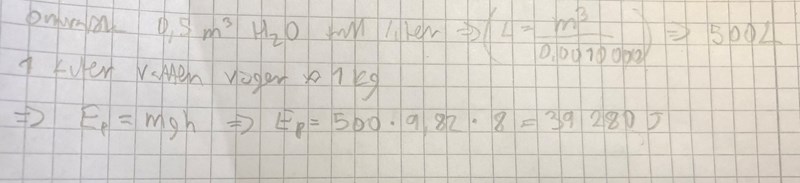 Omvandla 0,5 m³ H₂O till liter ⇒ (L = m³/0,0010000) ⇒ 500L
1 Liter vatten väger 1 kg
⇒ Eₚ = mgh ⇒ Eₚ = 500 · 9,82 · 8 = 39 280 J